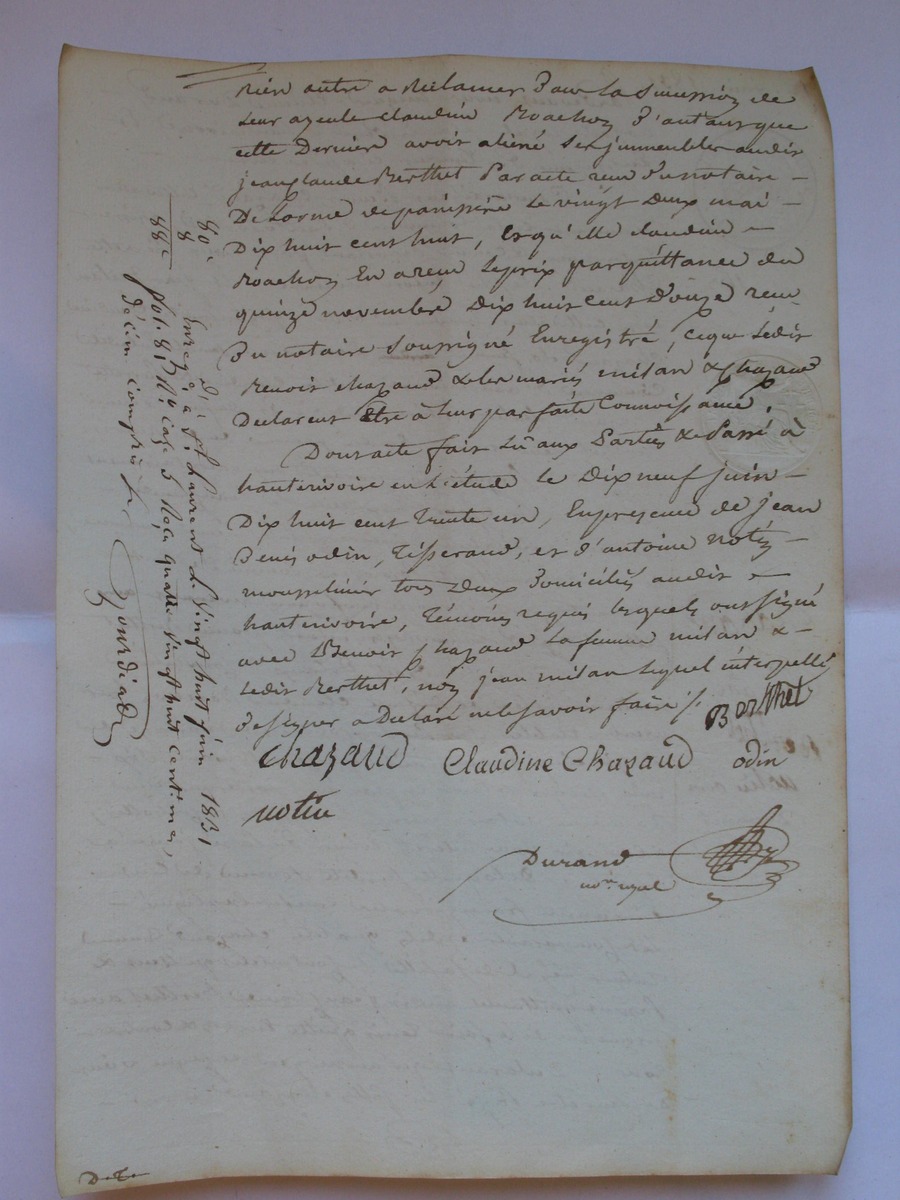 rien autre a réclamer dans la succession de
leur ayeule claudine Rochon d'autans que
cette Derniere avoir aliéné ses jmmeubles audit
jeanclaude Berthet Par acte recu du notaire -
Delorme de panissière le vingt deux mai -
Dix huit cent huit, et qu'elle claudine -
Rochon En a recu le prix par quittance du
quinze novembre Dix huit cent douze recu
du notaire soussigné Enregistré, ce que ledit
Benoit chazaud & les mariés milan & chazaud
Declarent Etre à leur parfaite Connoissance.
Dont acte fait lû aux Parties & Passé à
hauterivoire en l'étude le Dix neuf juin -
Dix huit cent trente un, En presence de jean
Denis odin, Tisserand, et d'antoine notin -
mousselinier tous Deux domiciliés audit -
hauterivoire, témoins requis lesquels ont signé
avec Benoit chazaud la femme milan & -
ledit Berthet, non jean milan lequel interpellé
de signer a declaré ne le savoir faire /.
Berthet
Chazaud Claudine Chazaud odin
notin
Durand
no.re royal
80 c
8
88 c
Enreg. à St Laurent le vingt huit juin 1831
fol. 81 case 5 Reçu quatre vingt huit centimes,
décime compris
Gourdiad